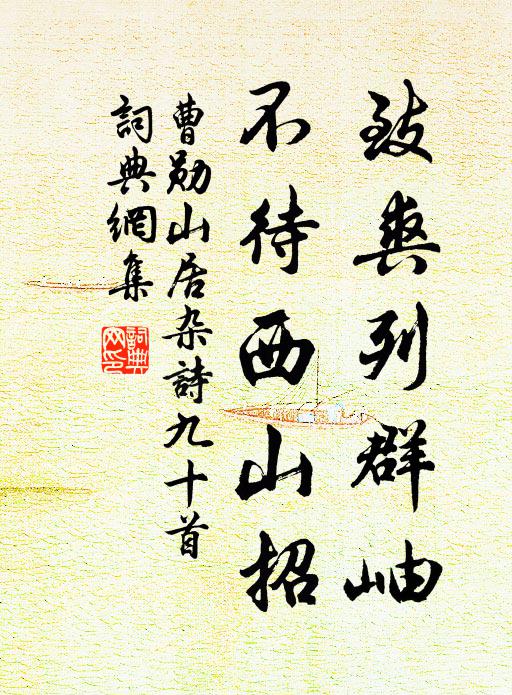 致爽列群岫
不待西山招
曹勋山居杂詩九十首
詞典網集
詞典網印